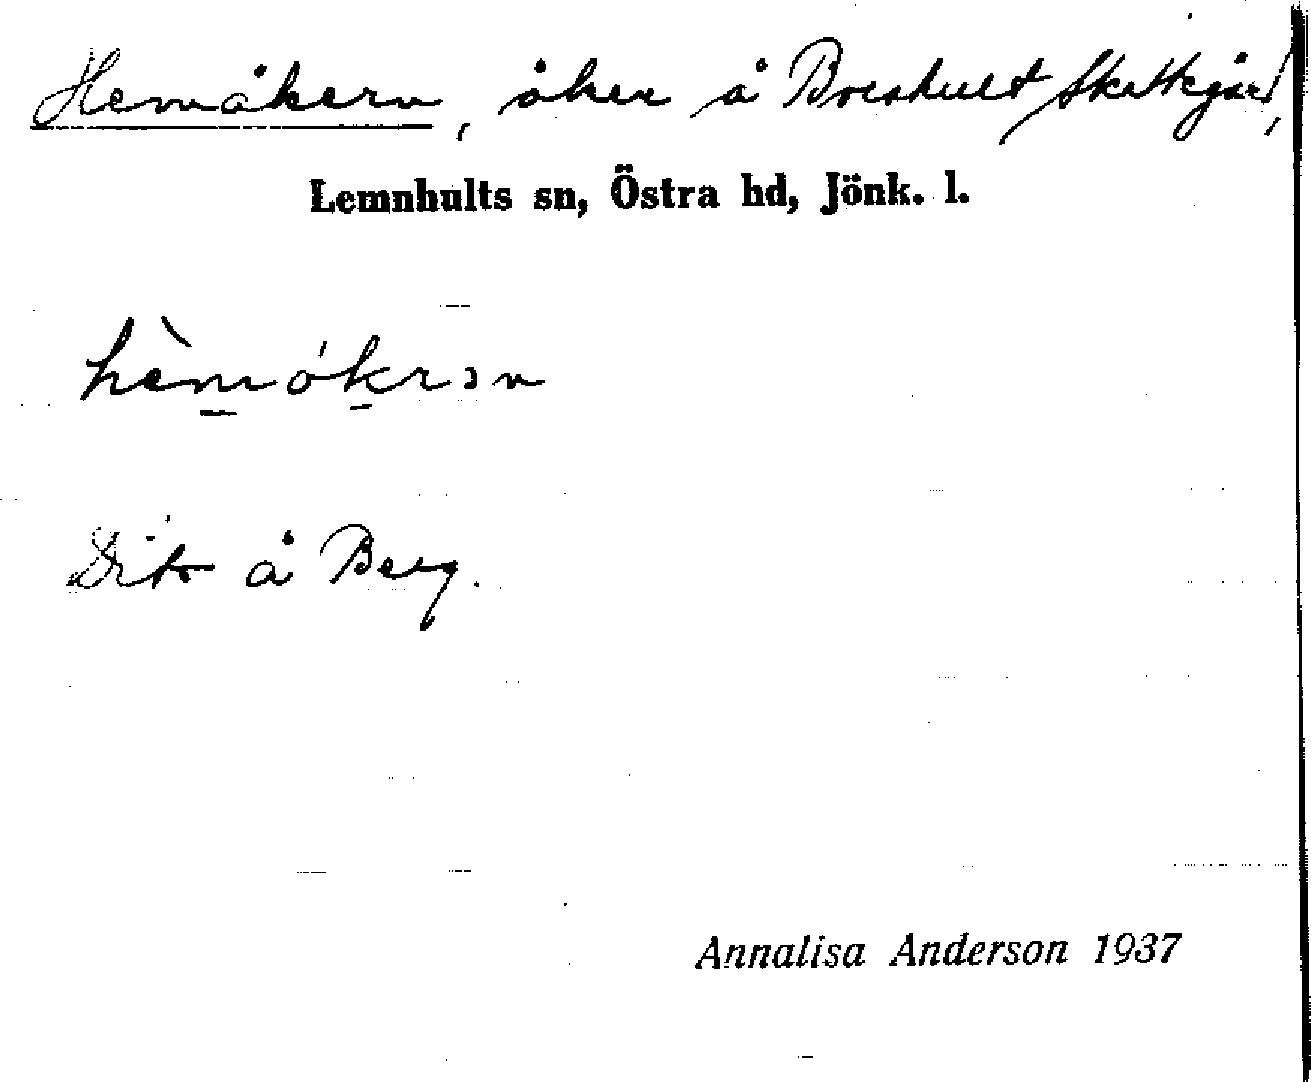 Hemåkern, åker å Broshult Skattegård,
Lemnhults sn, Östra hd, Jönk. l.
hèmókrən
Dito å Berg.
Annalisa Anderson 1937